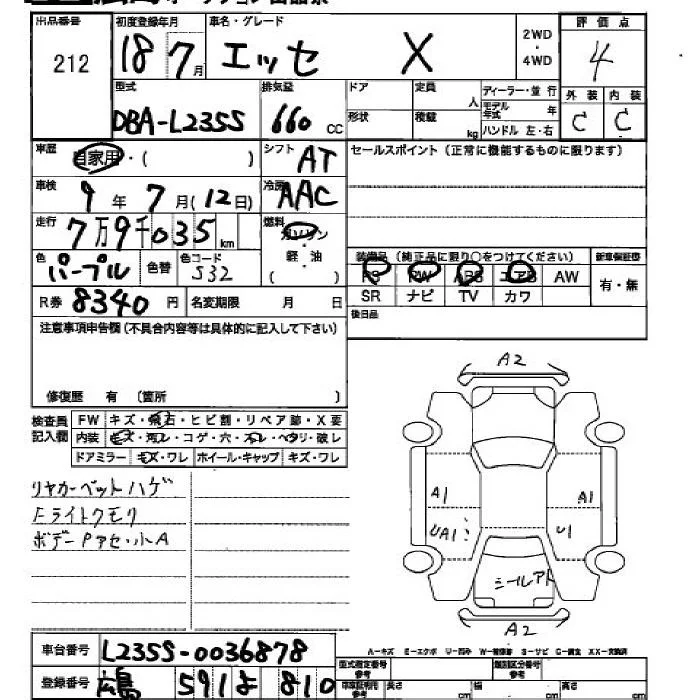 出品番号 初度登録年月 車名・グレード 2WD・4WD 評価点
212 18年7月 エッセ X 4
型式 排気量 ドア 定員 人 ディーラー・並行 外装 内装
DBA-L235S 660cc 形状 積載 kg モデル年式 年 ハンドル 左・右 C C
車歴 自家用・( ) シフト AT セールスポイント(正常に機能するものに限ります)
車検 9年7月(12日) 冷房 AAC
走行 7万9千035km 燃料 ガソリン 軽・油 ( )
色 パープル 色替 色コード S32
装備品(純正品に限り○をつけてください) 新車保証書
PS PW ABS エアB AW 有・無
SR ナビ TV カワ
R券 8340円 名変期限 月 日 後日品
注意事項申告欄(不具合内容等は具体的に記入して下さい)
修復歴 有 (箇所 )
検査員記入欄 FW キズ・飛石・ヒビ割・リペア跡・X要
内装 キズ・汚レ・コゲ・穴・スレ・ヘタリ・破レ
ドアミラー キズ・ワレ ホイール・キャップ キズ・ワレ
リヤカーペットハゲ
Fライトクモリ
ボデーPアセ・小A
A2
A1 A1
UA1 U1
シールアト
A2
A-キズ E-エクボ U-凹み W-補修跡 S-サビ C-腐食 XX-交換済
車台番号 L235S-0036878
型式指定番号 参考 類別区分番号 参考
登録番号 広島 591よ810
車庫証明用 参考 長さ cm 幅 cm 高さ cm